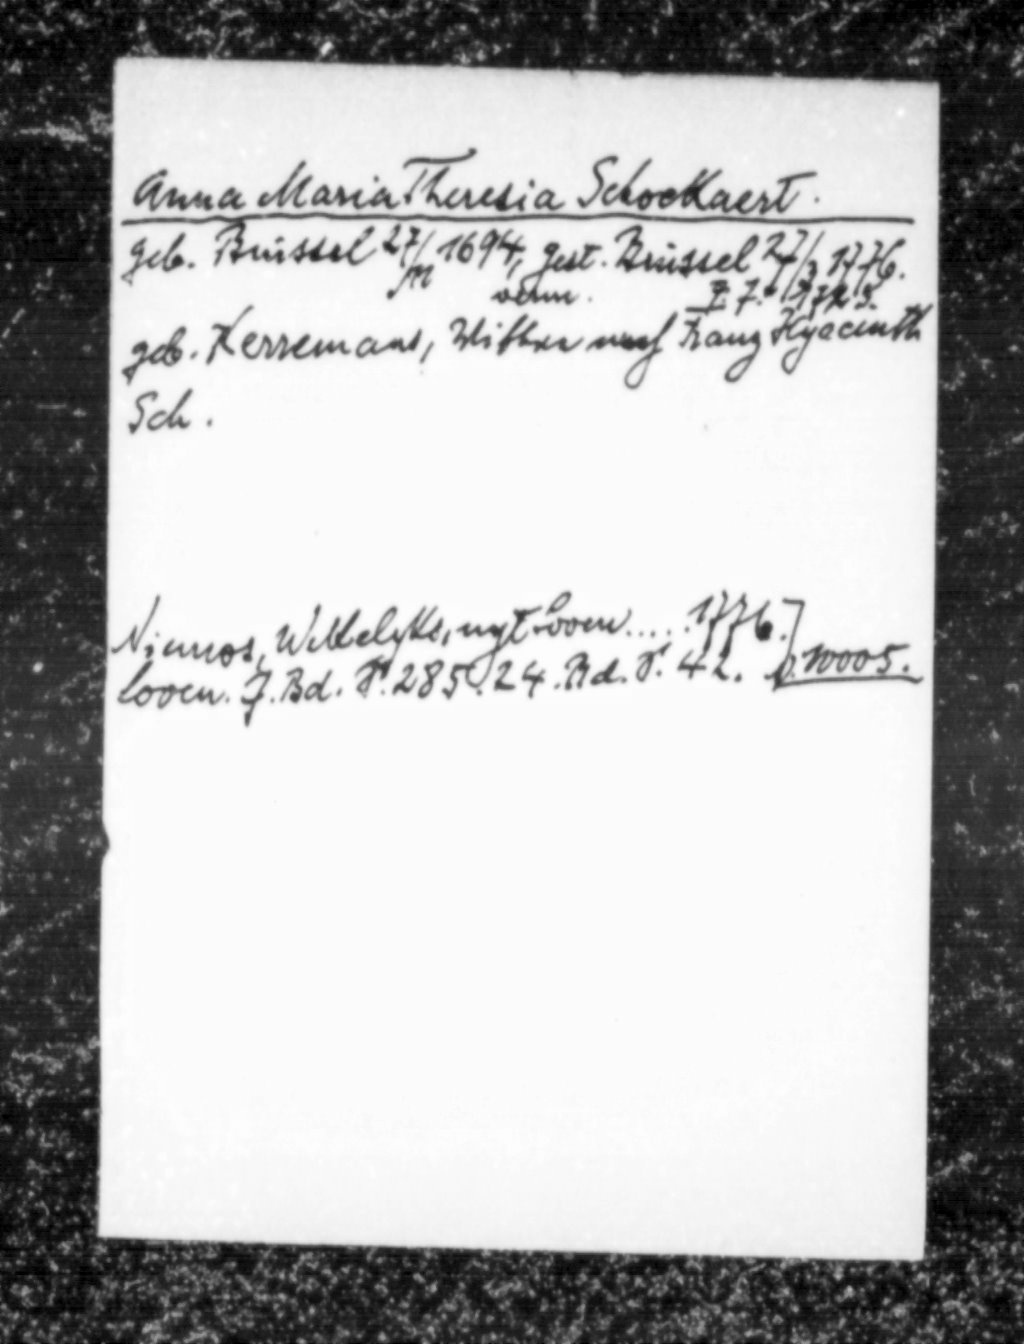 Anna Maria Theresia Schockaert.
geb. Brüssel 27/M 1694, gest. Brüssel 27/3 1776.
verm.
geb. Kerremans, Witwe nach Franz Hyacinth
Sch.
Nieuws, Wekelyks, uyt Loven..... 1776.
Loven. 7. Bd. S. 285. 24. Bd. S. 42. 10005.